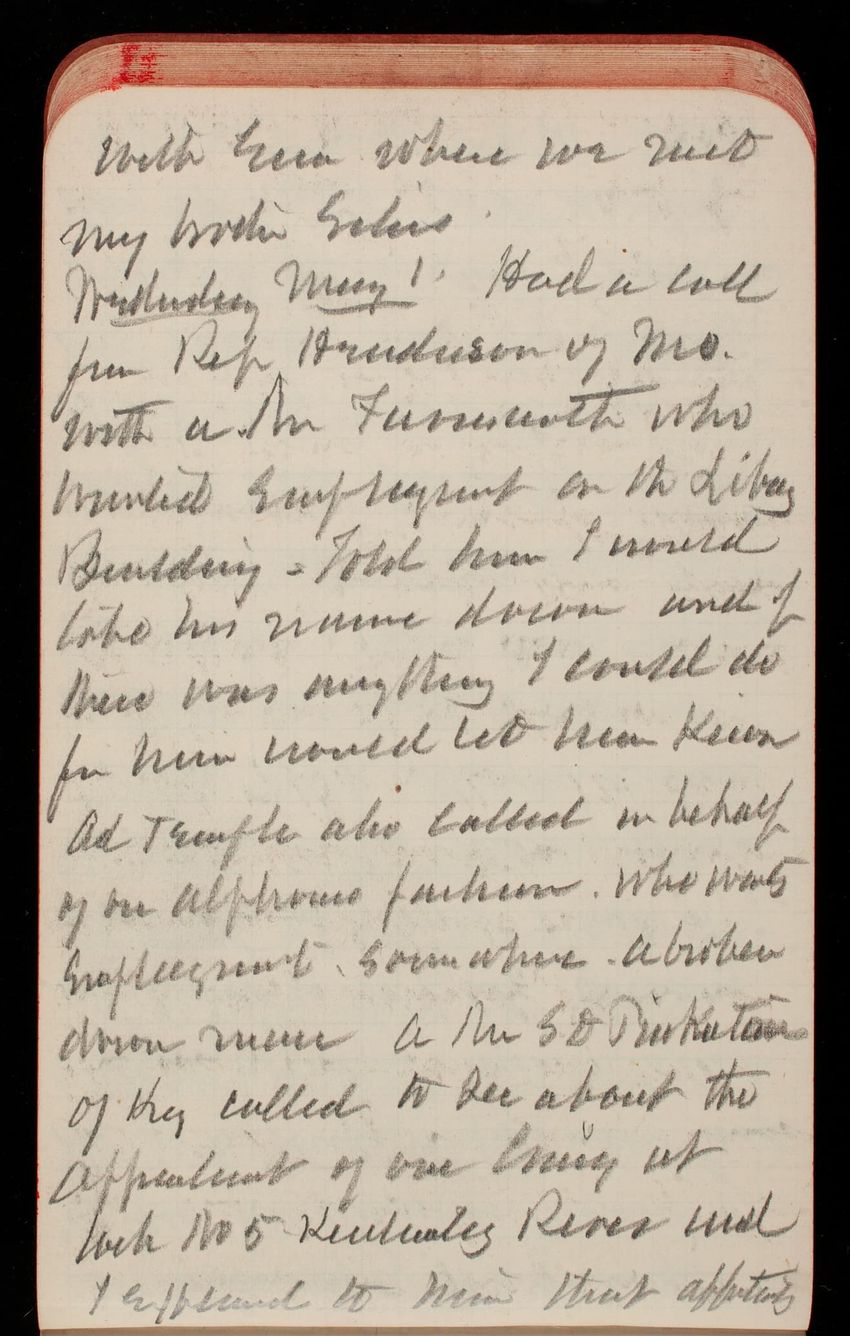 with Emma where we met
my brother Edwin
Wednesday May 1. Had a call
from Rep Henderson of Mo.
with a Mr Farnsworth who
wanted Employment on the Library
Building - Told him I would
take his name down and if
there was anything I could do
for him would let him Know
Ad Temple also called in behalf
of one Alphonso Jackson. who wants
Employment. Somewhere. a broken
down man A Mr S D
of Ky called to see about the
appointment of one at
lock No 5 Kentucky River and
I Explained to him that